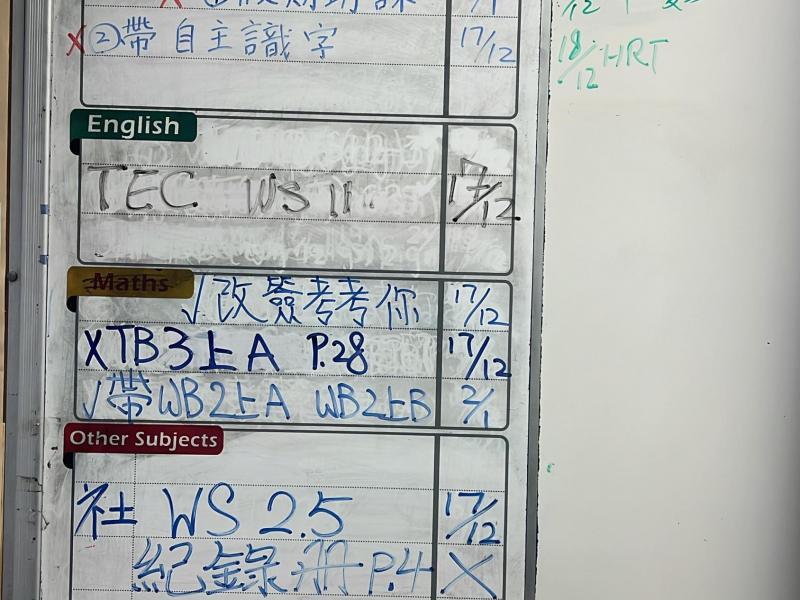 X②帶 自主識字 17/12
18/12 HRT
English
TEC WS 11 17/12
Maths
√改簽考考你 17/12
XTB3上A P.28 17/12
√帶WB2上A WB2上B 2/1
Other Subjects
社 WS 2.5 17/12
紀錄册 P.4 X